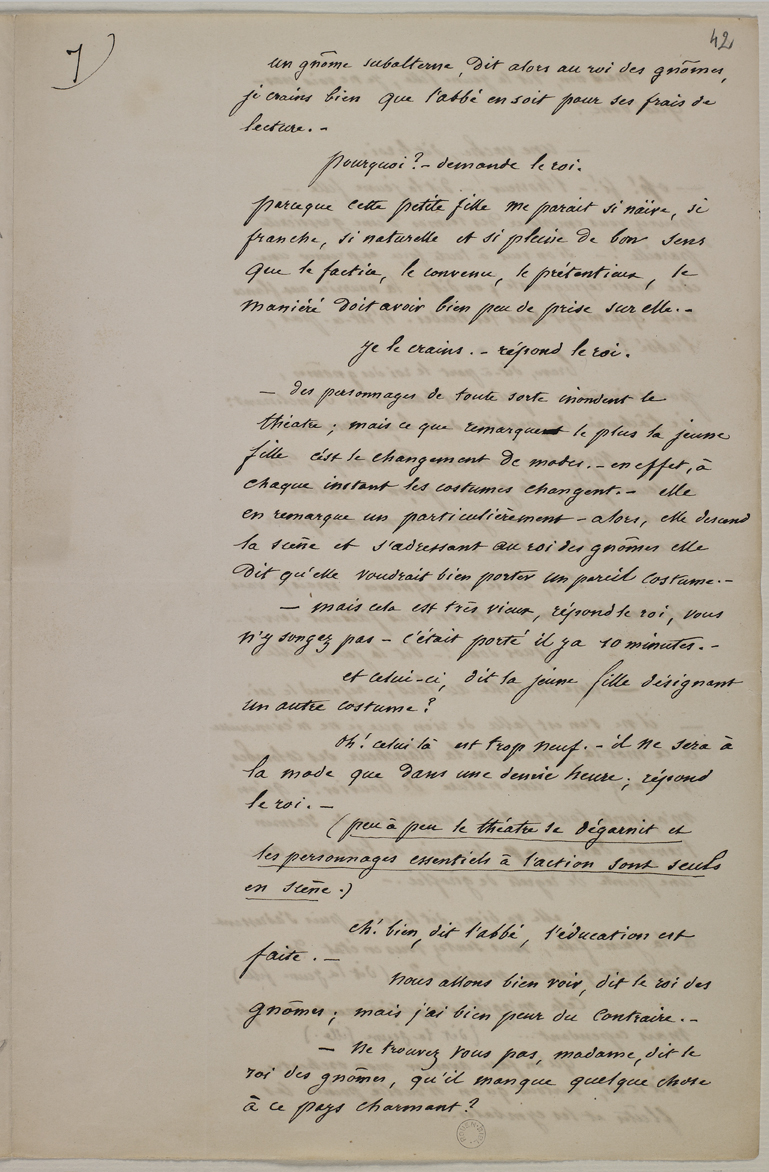 7)
42
un gnôme subalterne, dit alors au roi des gnômes,
je crains bien que l'abbé en soit pour ses frais de
lecture. -
pourquoi? - demande le roi.
parceque cette petite fille me parait si naïve, si
franche, si naturelle et si pleine de bon sens
que le factice, le convenu, le prétentieux, le
maniéré doit avoir bien peu de prise sur elle. -
je le crains. - répond le roi.
- des personnages de toute sorte inondent le
théatre; mais ce que remarque le plus la jeune
fille c'est le changement de modes. - en effet, à
chaque instant les costumes changent. - elle
en remarque un particulièrement - alors, elle descend
la scène et s'adressant au roi des gnômes elle
dit qu'elle voudrait bien porter un pareil costume. -
- mais cela est très vieux, répond le roi, vous
n'y songez pas - c'était porté il y a 10 minutes. -
et celui-ci, dit la jeune fille désignant
un autre costume?
oh! celui là est trop neuf. - il ne sera à
la mode que dans une demie heure; répond
le roi. -
(peu à peu le théatre se dégarnit et
les personnages essentiels à l'action sont seuls
en scène.)
eh! bien, dit l'abbé, l'éducation est
faite. -
nous allons bien voir, dit le roi des
gnômes; mais j'ai bien peur du contraire. -
- ne trouvez vous pas, madame, dit le
roi des gnômes, qu'il manque quelque chose
à ce pays charmant?